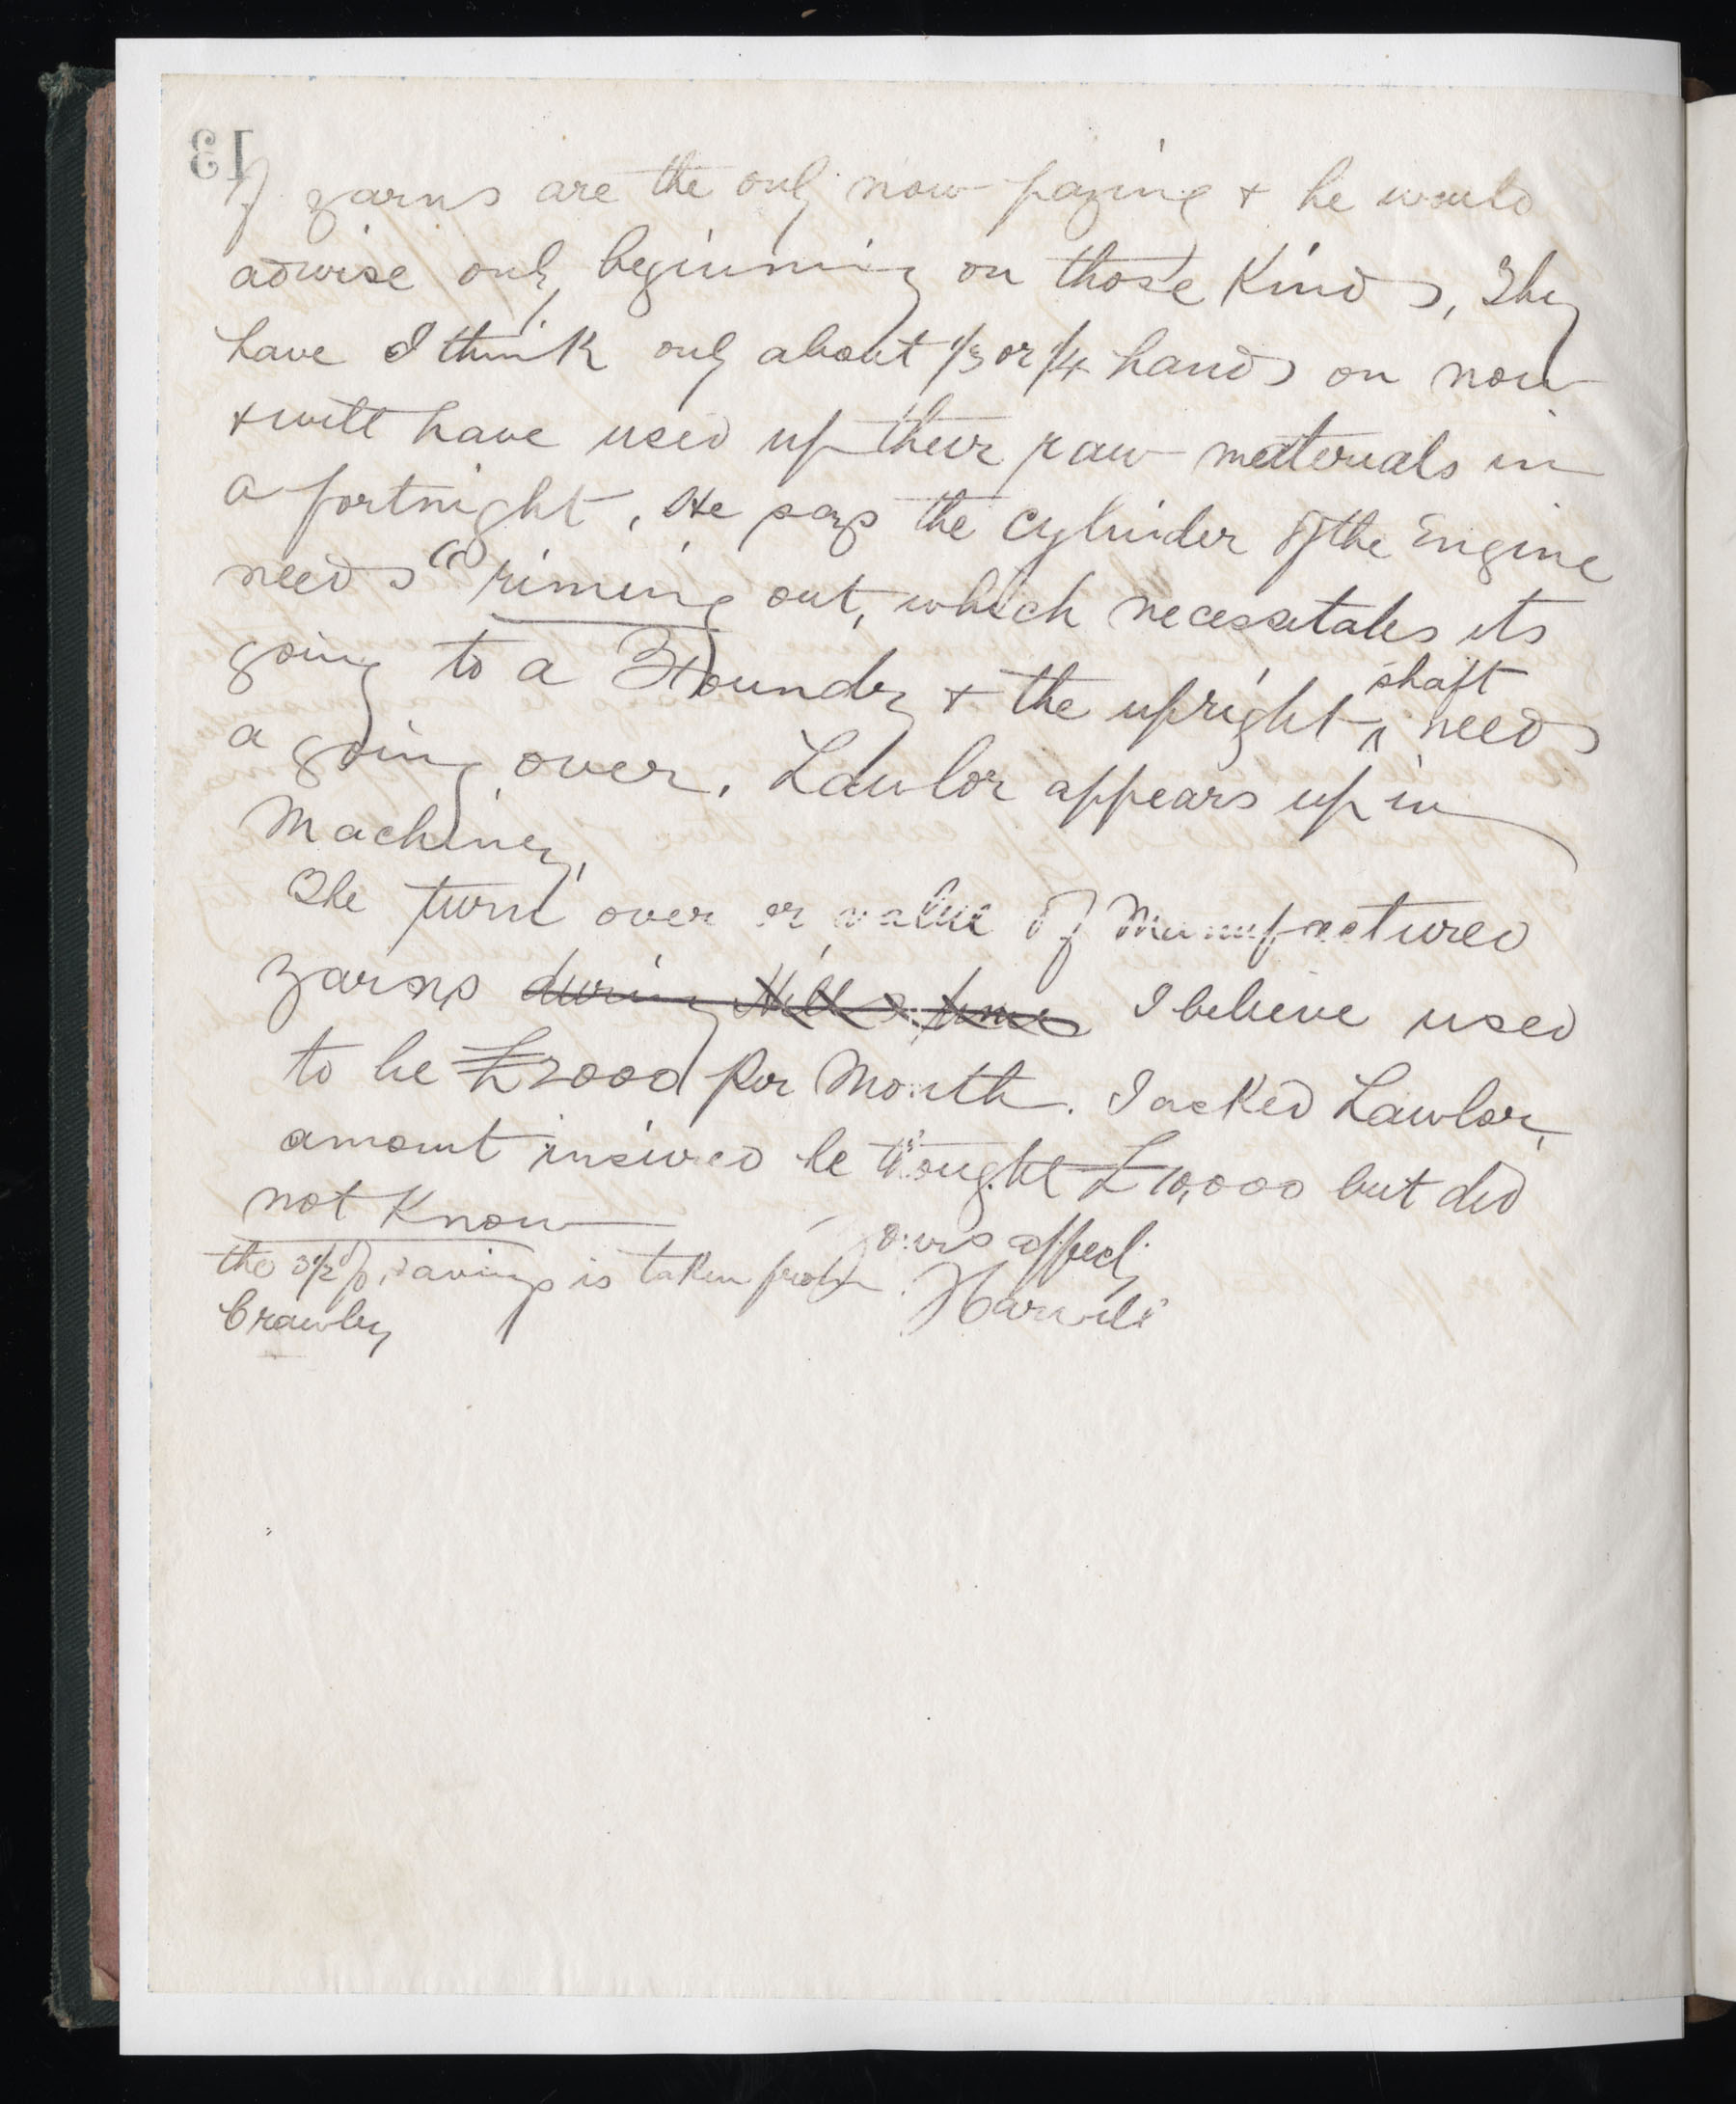 13
of yarns are the only now paying & he would
advise only beginning on those Kinds, They
have I think only about 1/3 or 1/4 hands on now
& will have used up their raw materials in
a fortnight, He says the cylinder of the Engine
needs "riming out, which necessitates its
going to a Foundry & the upright shaft needs
a going over. Lawlor appears up in
Machinery,
The turn over or value of Manufactured
yarns during Hills times I believe used
to be £2000 per Month. I asked Lawlor,
amount insured he thought £10,000 but did
not Know
Yours affecly
the 3 1/2 savings is taken from
Crawley